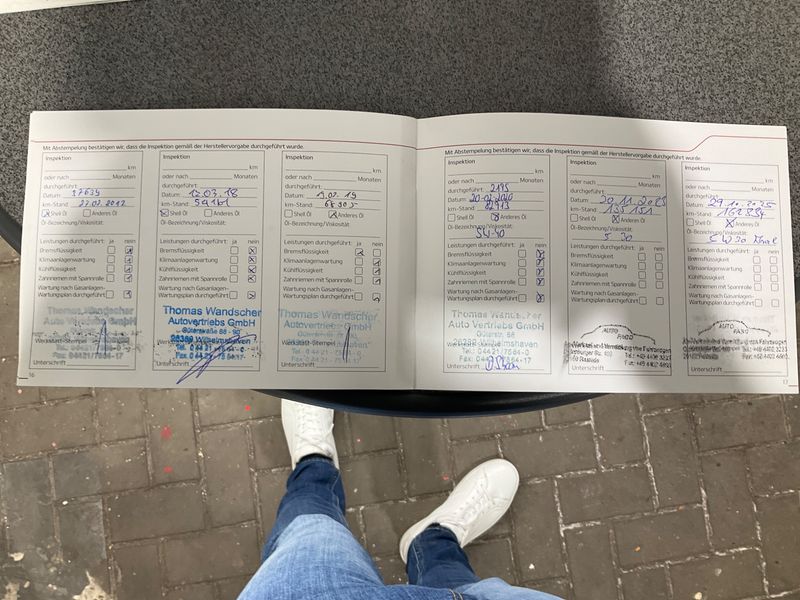 Mit Abstempelung bestätigen wir, dass die Inspektion gemäß der Herstellervorgabe durchgeführt wurde.
Inspektion
km
oder nach Monaten
durchgeführt:
Datum:
km-Stand:
Shell Öl Anderes Öl
Öl-Bezeichnung/Viskosität:
Leistungen durchgeführt: ja nein
Bremsflüssigkeit
Klimaanlagenwartung
Kühlflüssigkeit
Zahnriemen mit Spannrolle
Wartung nach Gasanlagen-
Wartungsplan durchgeführt
Thomas Wandscher
Auto Vertriebs GmbH
Werkstatt-Stempel
Fax: 04421/7564-17
Unterschrift
16
Inspektion
km
oder nach Monaten
durchgeführt:
Datum: 12.03.18
km-Stand:
Shell Öl Anderes Öl
Öl-Bezeichnung/Viskosität:
Leistungen durchgeführt: ja nein
Bremsflüssigkeit
Klimaanlagenwartung
Kühlflüssigkeit
Zahnriemen mit Spannrolle
Wartung nach Gasanlagen-
Wartungsplan durchgeführt
Thomas Wandscher
Autovertriebs GmbH
26389 Wilhelmshaven
Tel. 04421 - 7564-0
Fax 04421 7564-17
Inspektion
km
oder nach Monaten
durchgeführt:
Datum:
km-Stand:
Shell Öl Anderes Öl
Öl-Bezeichnung/Viskosität:
Leistungen durchgeführt: ja nein
Bremsflüssigkeit
Klimaanlagenwartung
Kühlflüssigkeit
Zahnriemen mit Spannrolle
Wartung nach Gasanlagen-
Wartungsplan durchgeführt
Thomas Wandscher
Autovertriebs GmbH
Unterschrift
Mit Abstempelung bestätigen wir, dass die Inspektion gemäß der Herstellervorgabe durchgeführt wurde.
Inspektion
km
oder nach Monaten
durchgeführt:
Datum: 20.02.2020
km-Stand:
Shell Öl Anderes Öl
Öl-Bezeichnung/Viskosität:
5W-40
Leistungen durchgeführt: ja nein
Bremsflüssigkeit
Klimaanlagenwartung
Kühlflüssigkeit
Zahnriemen mit Spannrolle
Wartung nach Gasanlagen-
Wartungsplan durchgeführt
Thomas Wandscher
Auto Vertriebs GmbH
Güterstr. 88
26389 Wilhelmshaven
Tel.: 04421/7564-0
Fax: 04421/7564-17
Unterschrift
Inspektion
km
oder nach Monaten
durchgeführt:
Datum:
km-Stand: 135 151
Shell Öl Anderes Öl
Öl-Bezeichnung/Viskosität:
5 30
Leistungen durchgeführt: ja nein
Bremsflüssigkeit
Klimaanlagenwartung
Kühlflüssigkeit
Zahnriemen mit Spannrolle
Wartung nach Gasanlagen-
Wartungsplan durchgeführt
AUTO
Unterschrift
Inspektion
km
oder nach Monaten
durchgeführt:
Datum: 29.10.2025
km-Stand:
Shell Öl Anderes Öl
Öl-Bezeichnung/Viskosität:
Leistungen durchgeführt: ja nein
Bremsflüssigkeit
Klimaanlagenwartung
Kühlflüssigkeit
Zahnriemen mit Spannrolle
Wartung nach Gasanlagen-
Wartungsplan durchgeführt
AUTO
Unterschrift
17